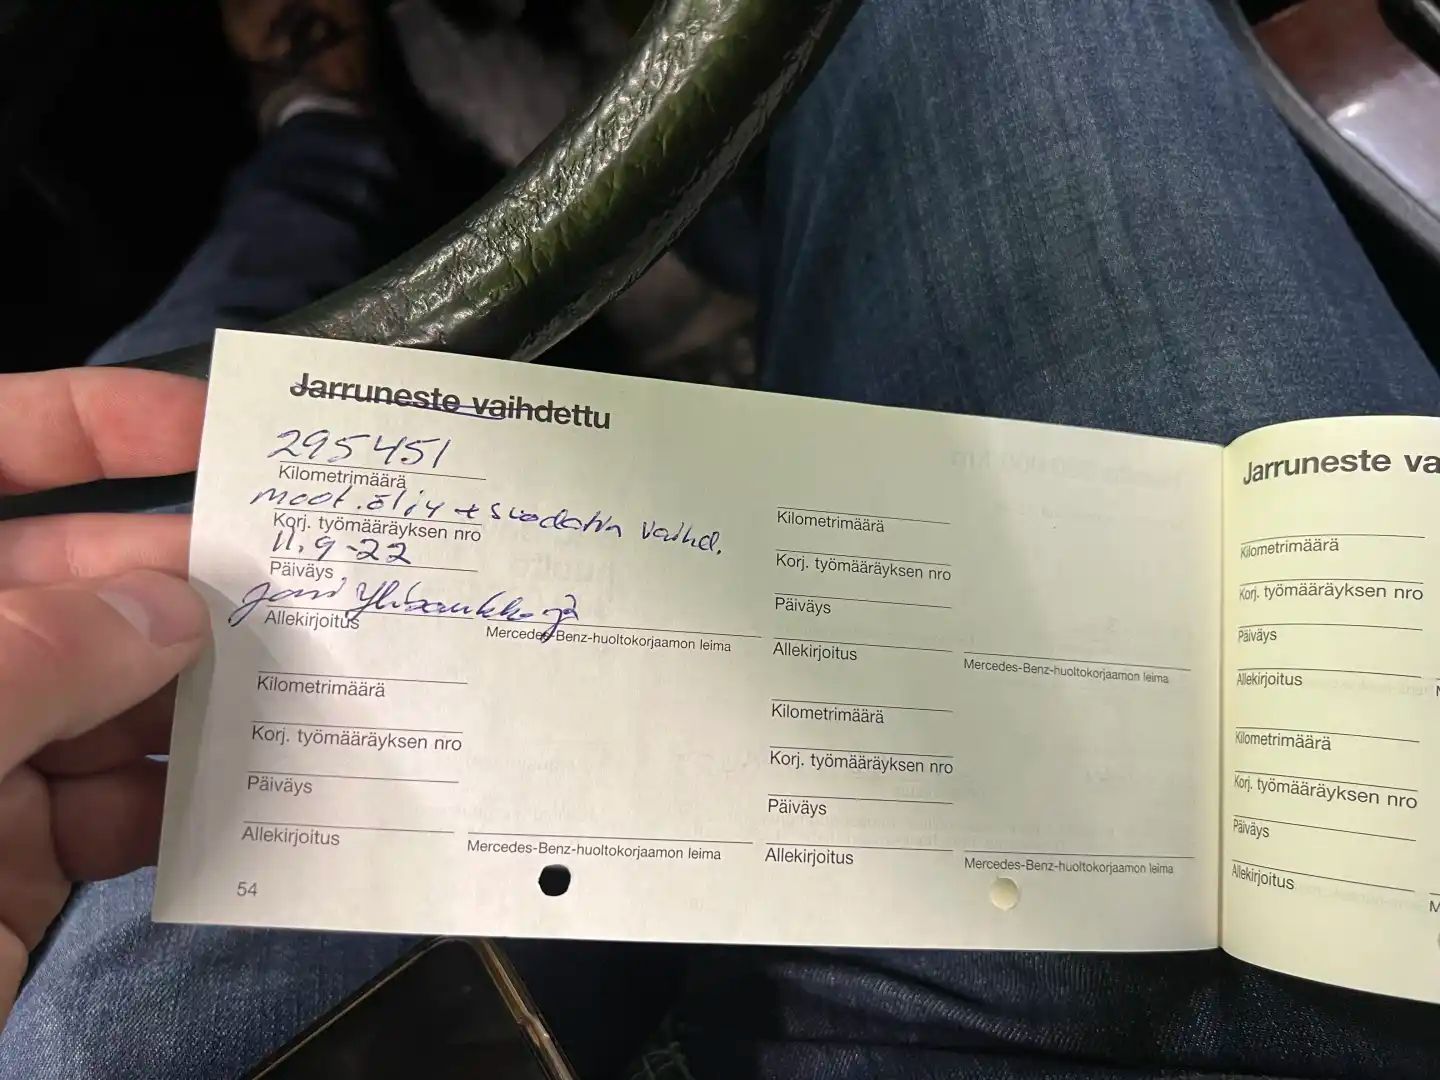 Jarruneste vaihdettu
295451
Kilometrimäärä
moot. öljy + suodatin vaihd.
Korj. työmääräyksen nro
11.9-22
Päiväys
Allekirjoitus
Mercedes-Benz-huoltokorjaamon leima
Kilometrimäärä
Korj. työmääräyksen nro
Päiväys
Allekirjoitus
Mercedes-Benz-huoltokorjaamon leima
54
Kilometrimäärä
Korj. työmääräyksen nro
Päiväys
Allekirjoitus
Mercedes-Benz-huoltokorjaamon leima
Kilometrimäärä
Korj. työmääräyksen nro
Päiväys
Allekirjoitus
Mercedes-Benz-huoltokorjaamon leima
Jarruneste va
Kilometrimäärä
Korj. työmääräyksen nro
Päiväys
Allekirjoitus
Kilometrimäärä
Korj. työmääräyksen nro
Päiväys
Allekirjoitus